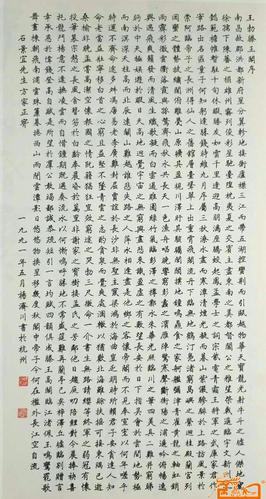 王勃滕王閣序
南昌故郡洪都新府星分翼軫地接衡廬襟三江而帶五湖控蠻荊而引甌越物華天寶龍光射牛斗之墟人傑地靈
徐孺下陳蕃之榻雄州霧列俊彩星馳臺隍枕夷夏之交賓主盡東南之美都督閻公之雅望棨戟遙臨宇文新州之
懿範襜帷暫駐十旬休暇勝友如雲千里逢迎高朋滿座騰蛟起鳳孟學士之詞宗紫電青霜王將軍之武庫家君作
宰路出名區童子何知躬逢勝餞時維九月序屬三秋潦水盡而寒潭清煙光凝而暮山紫儼驂騑於上路訪風景於
崇阿臨帝子之長洲得仙人之舊館層臺聳翠上出重霄飛閣流丹下臨無地鶴汀鳧渚窮島嶼之縈迴桂殿蘭宮列
岡巒之體勢披繡闥俯雕甍山原曠其盈視川澤盱其駭矚閭閻撲地鐘鳴鼎食之家舸艦彌津青雀黃龍之軸虹銷
雨霽彩徹雲衢落霞與孤鶩齊飛秋水共長天一色漁舟唱晚響窮彭蠡之濱雁陣驚寒聲斷衡陽之浦遙吟俯暢逸
興遄飛爽籟發而清風生纖歌凝而白雲遏睢園綠竹氣凌彭澤之樽鄴水朱華光照臨川之筆四美具二難并窮睇
眄於中天極娛遊於暇日天高地迥覺宇宙之無窮興盡悲來識盈虛之有數望長安於日下指吳會於雲間地勢極
而南溟深天柱高而北辰遠關山難越誰悲失路之人萍水相逢盡是他鄉之客懷帝閽而不見奉宣室以何年嗚乎
時運不齊命途多舛馮唐易老李廣難封屈賈誼於長沙非無聖主竄梁鴻於海曲豈乏明時所賴君子安貧達人知
命老當益壯寧移白首之心窮且益堅不墜青雲之志酌貪泉而覺爽處涸轍以猶歡北海雖賒扶搖可接東隅已逝
桑榆非晚孟嘗高潔空懷報國之心阮籍猖狂豈效窮途之哭勃三尺微命一介書生無路請纓等終軍之弱冠有懷
投筆慕宗愨之長風舍簪笏於百齡奉晨昏於萬里非謝家之寶樹接孟氏之芳鄰他日趨庭叨陪鯉對今晨捧袂喜
托龍門楊意不逢撫凌雲而自惜鍾期既遇奏流水以何慚嗚呼勝地不常盛筵難再蘭亭已矣梓澤丘墟臨別贈言
幸承恩於偉餞登高作賦是所望於群公敢竭鄙誠恭疏短引一言均賦四韻俱成滕王高閣臨江渚佩玉鳴鸞罷歌
舞畫棟朝飛南浦雲珠簾暮捲西山雨閒雲潭影日悠悠物換星移幾度秋閣中帝子今何在檻外長江空自流
石景宜先生方家正字
一九九一年五月楊濟川書於杭州